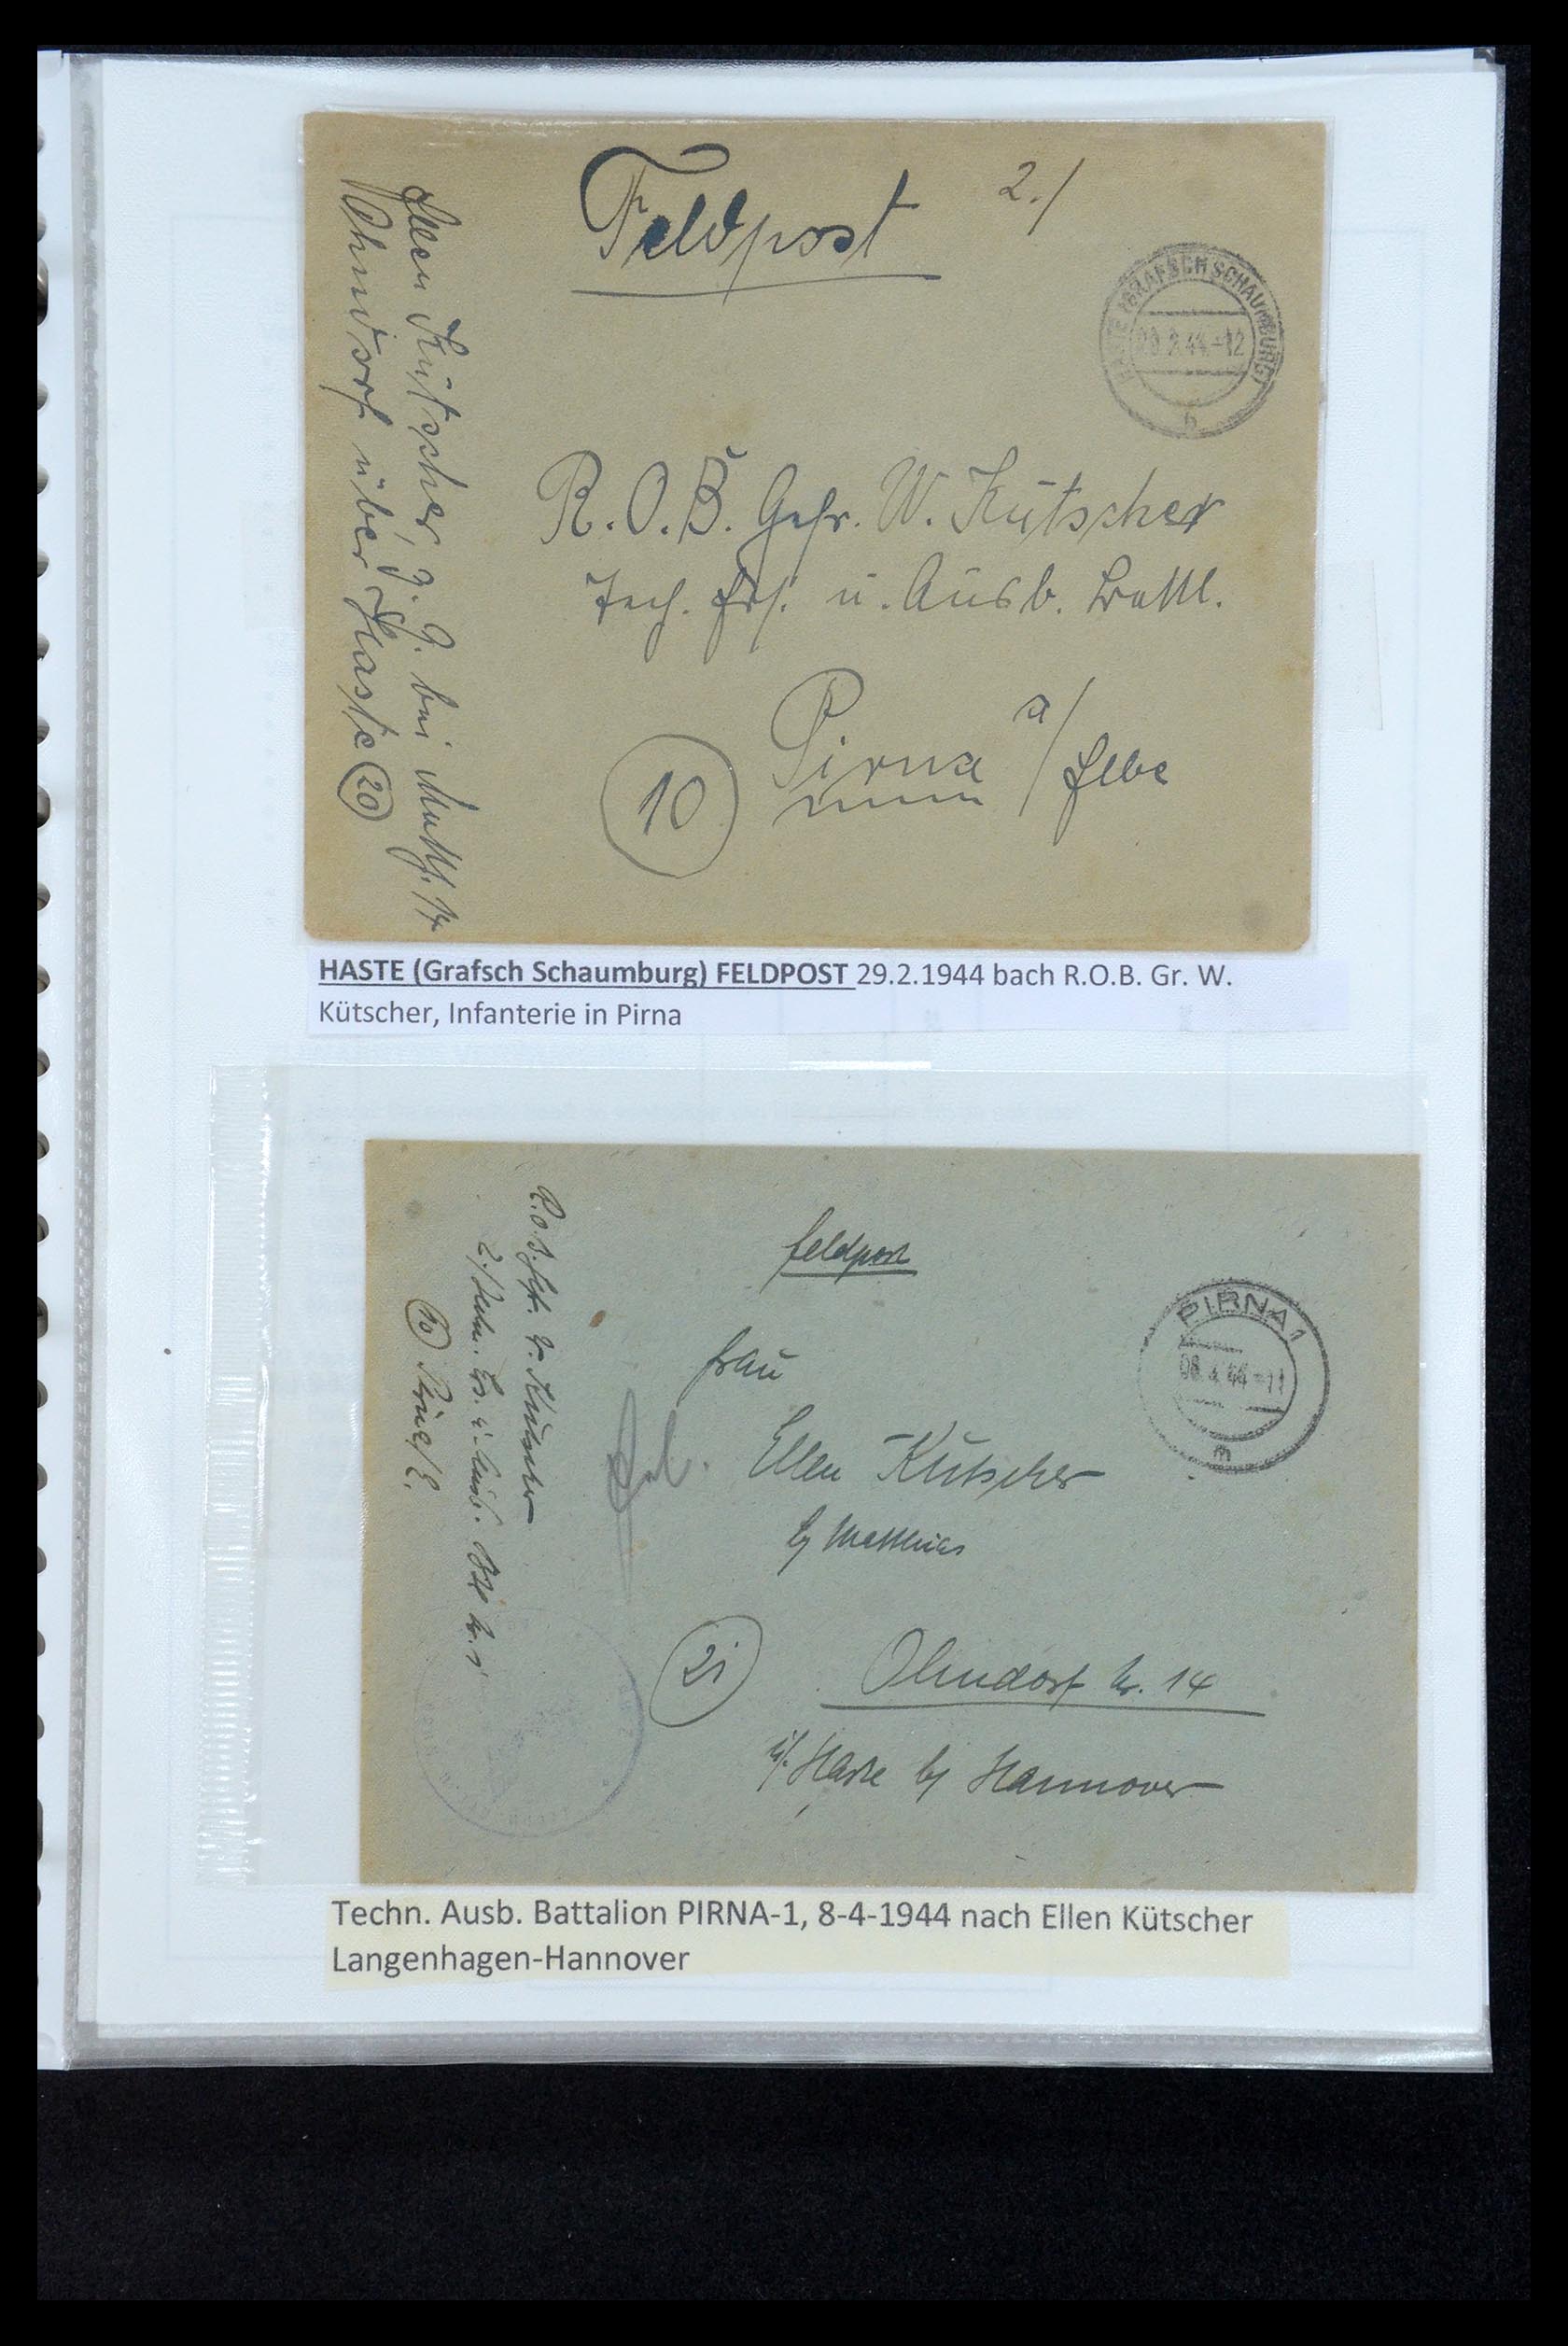 Feldpost 2./
HASTE (GRAFSCH SCHAUMBURG)
29.2.44.-12
b
R.O.B. Gefr. W. Kütscher
Tech. Ers. u. Ausb. Battl.
Pirna a/Elbe
10
Ellen Kütscher, z. Z. bei Matth. 14
Ohndorf über Haste 20
HASTE (Grafsch Schaumburg) FELDPOST 29.2.1944 bach R.O.B. Gr. W.
Kütscher, Infanterie in Pirna
Feldpost
PIRNA 1
08.4.44-11
m
Frau
Ellen Kütscher
b/ Matthias
21 Ohndorf Nr. 14
ü/. Haste b/ Hannover
R.O.B. Gefr. W. Kütscher
2./Techn. Ers. u. Ausb. Btl Nr. 1
10 Pirna/E.
Techn. Ausb. Battalion PIRNA-1, 8-4-1944 nach Ellen Kütscher
Langenhagen-Hannover